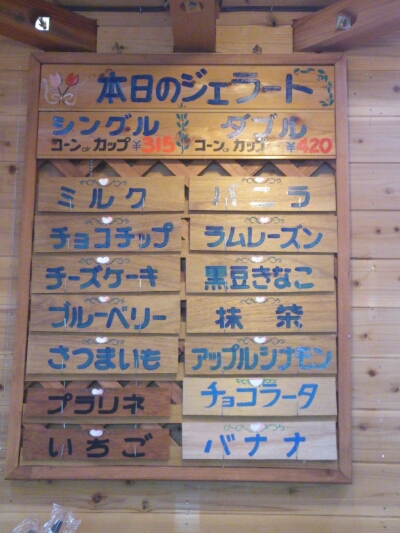 本日のジェラート
シングル ダブル
コーン or カップ ¥315 コーン or カップ ¥420
ミルク バニラ
チョコチップ ラムレーズン
チーズケーキ 黒豆きなこ
ブルーベリー 抹茶
さつまいも アップルシナモン
プラリネ チョコラータ
いちご バナナ